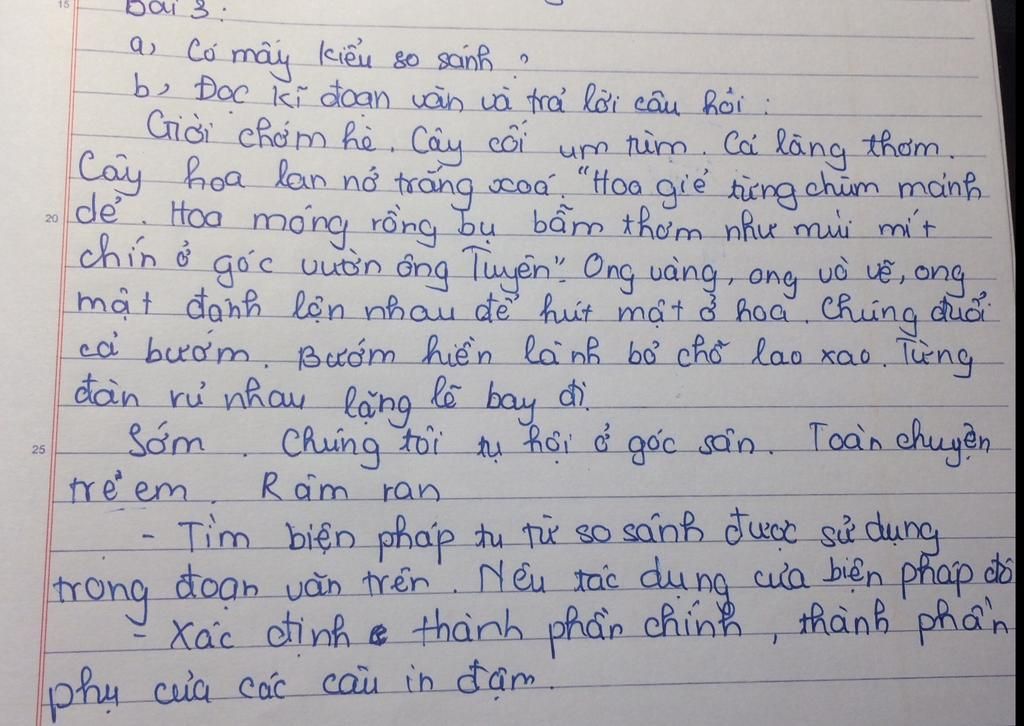 Bài 3:
a, Có mấy kiểu so sánh?
b, Đọc kĩ đoạn văn và trả lời câu hỏi:
Giời chớm hè. Cây cối um tùm. Cả làng thơm.
Cây hoa lan nở trắng xoá. "Hoa giẻ từng chùm mảnh
dẻ. Hoa móng rồng bụ bẫm thơm như mùi mít
chín ở góc vườn ông Tuyên". Ong vàng, ong vò vẽ, ong
mật đánh lộn nhau để hút mật ở hoa. Chúng đuổi
cả bướm. Bướm hiền lành bỏ chỗ lao xao. Từng
đàn rủ nhau lặng lẽ bay đi.
Sớm. Chúng tôi tụ hội ở góc sân. Toàn chuyện
trẻ em. Râm ran
- Tìm biện pháp tu từ so sánh được sử dụng
trong đoạn văn trên. Nêu tác dụng của biện pháp đó
- Xác định thành phần chính, thành phần
phụ của các câu in đậm.